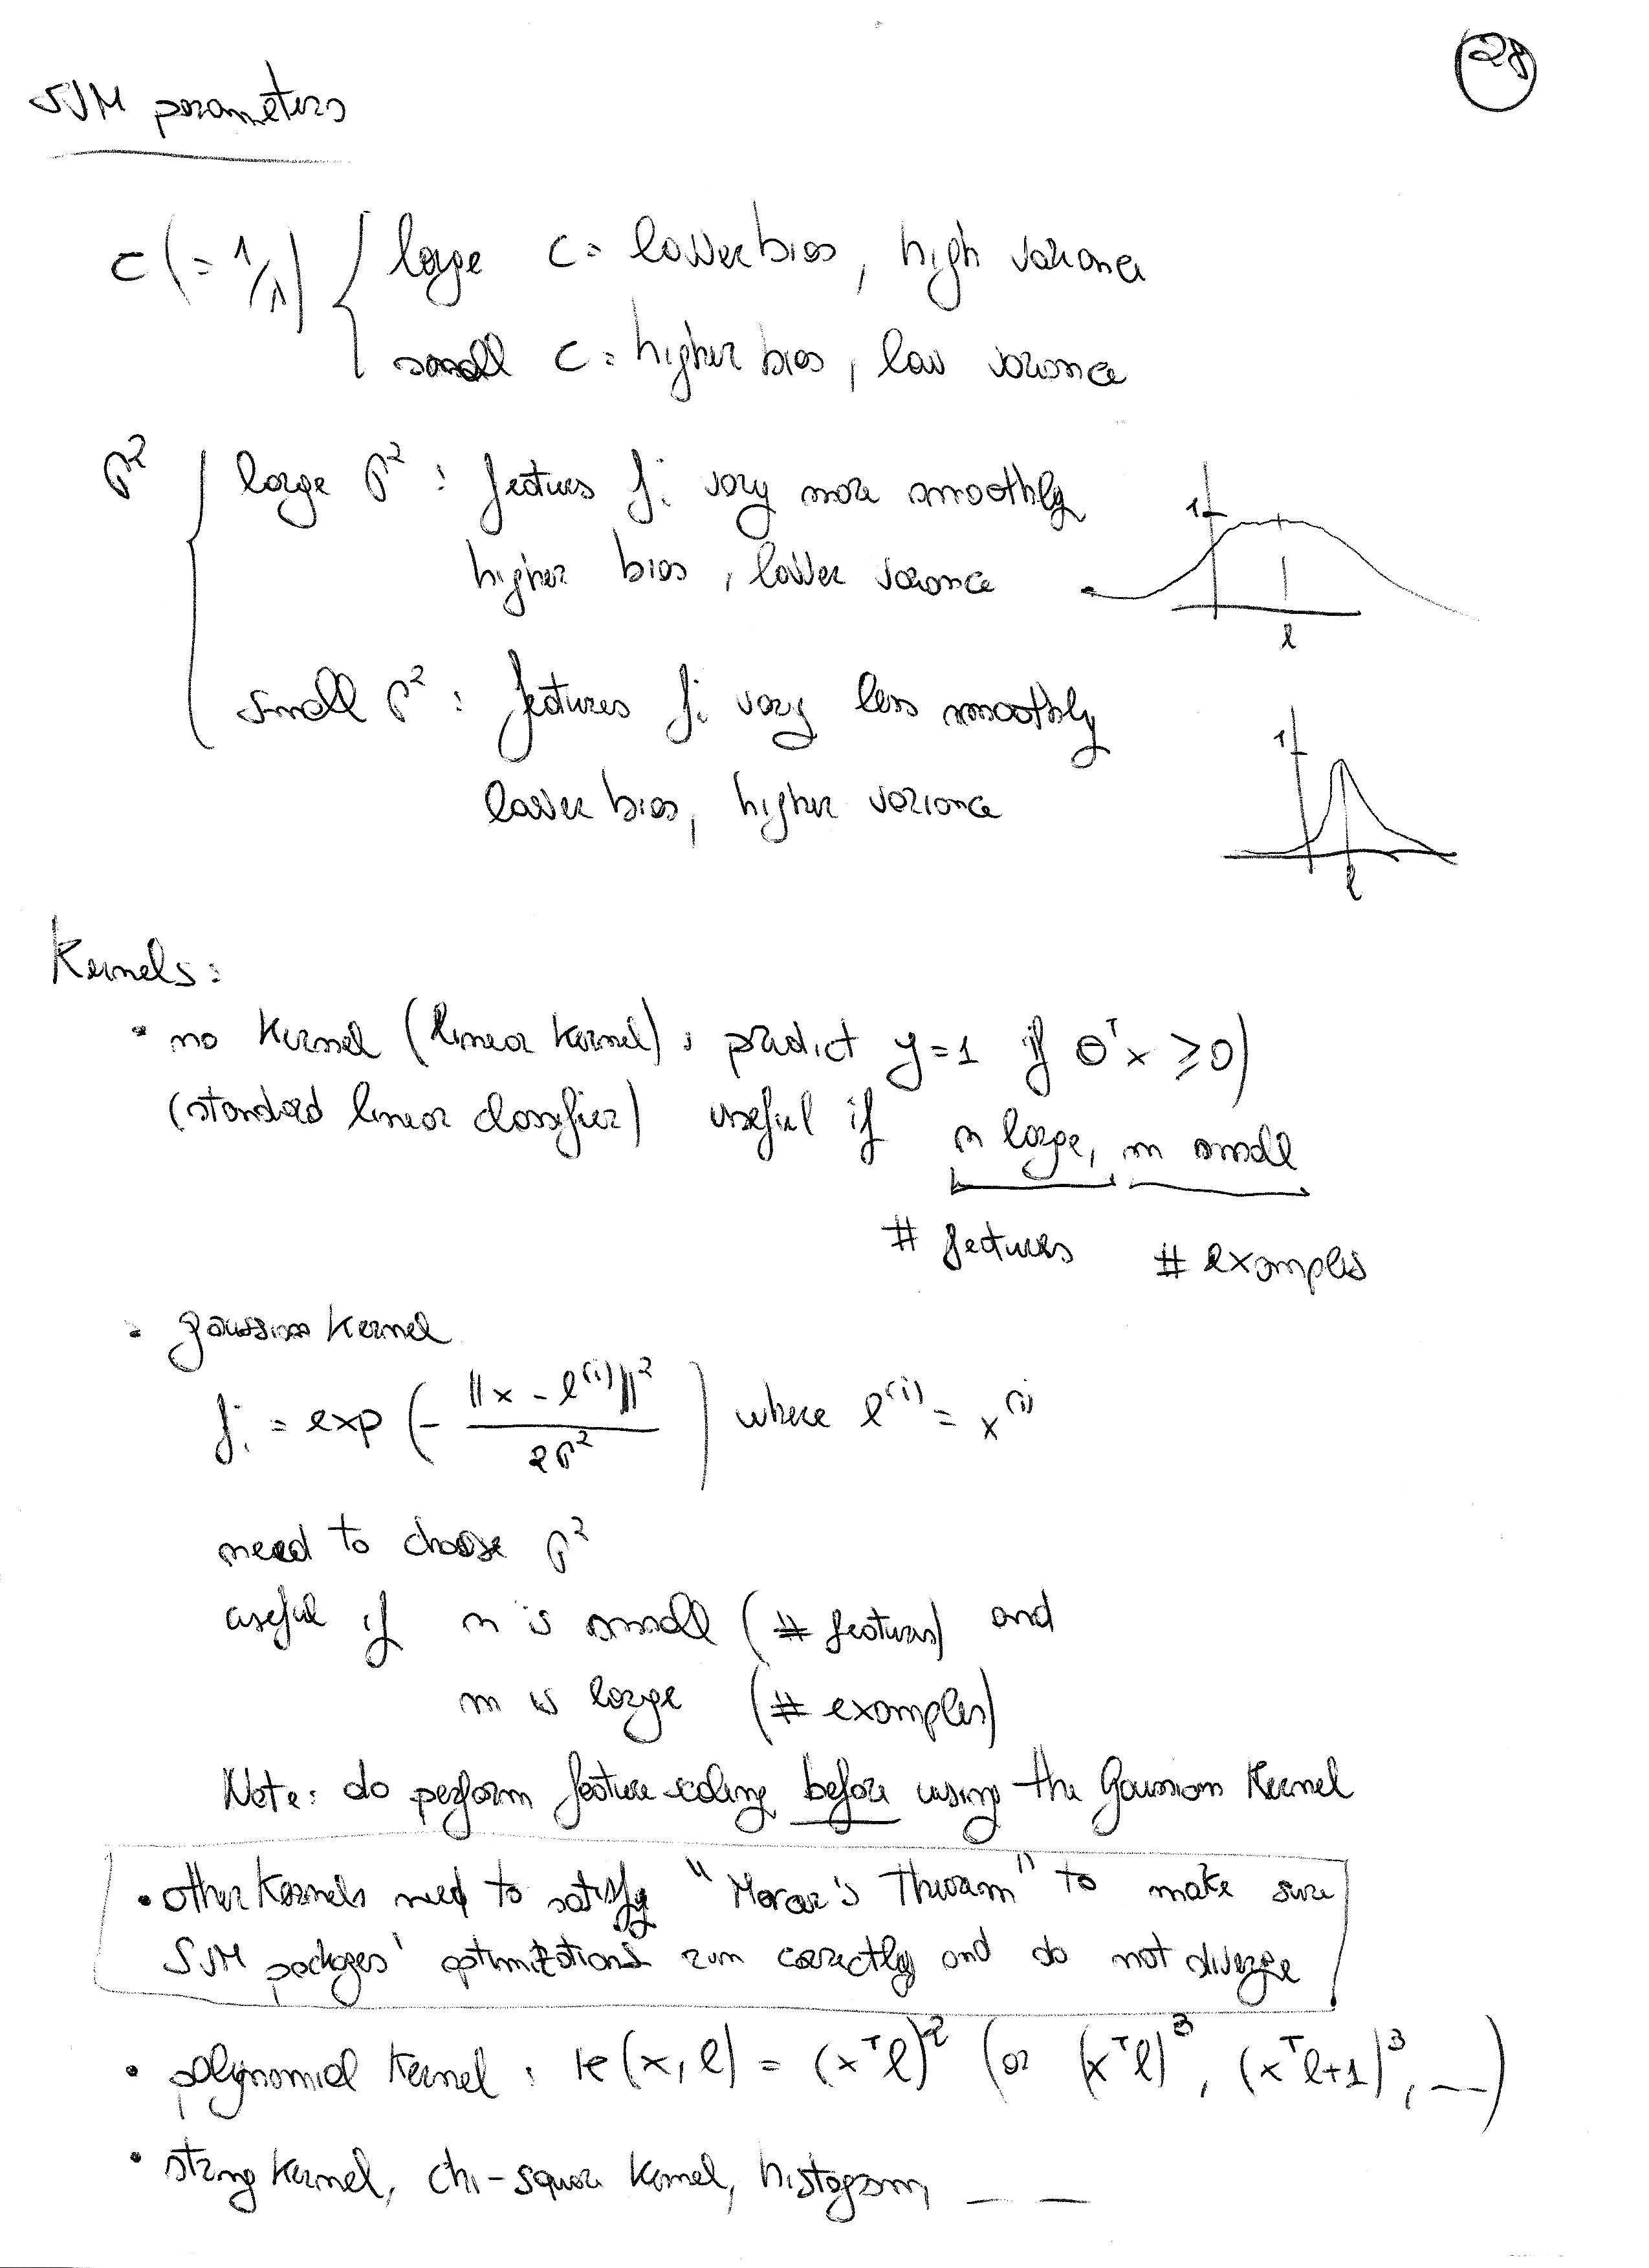 28
SVM parameters
C (= 1/λ) { large C: lower bias, high variance
small C: higher bias, low variance
σ² { large σ²: features fi vary more smoothly
higher bias, lower variance
1
l
small σ²: features fi vary less smoothly
lower bias, higher variance
1
l
Kernels:
• no kernel (linear kernel): predict y=1 if θᵀx ≥ 0)
(standard linear classifier) useful if n large, m small
# features # examples
• gaussian kernel
fi = exp (- ||x - l⁽ⁱ⁾||² / 2σ²) where l⁽ⁱ⁾ = x⁽ⁱ⁾
need to choose σ²
useful if n is small (# features) and
m is large (# examples)
Note: do perform feature scaling before using the Gaussian Kernel
• other kernels need to satisfy "Mercer's Theorem" to make sure
SVM packages' optimizations run correctly and do not diverge
• polynomial kernel: k(x, l) = (xᵀl)² (or (xᵀl)³, (xᵀl+1)³, ...)
• string kernel, chi-square kernel, histogram, _ _